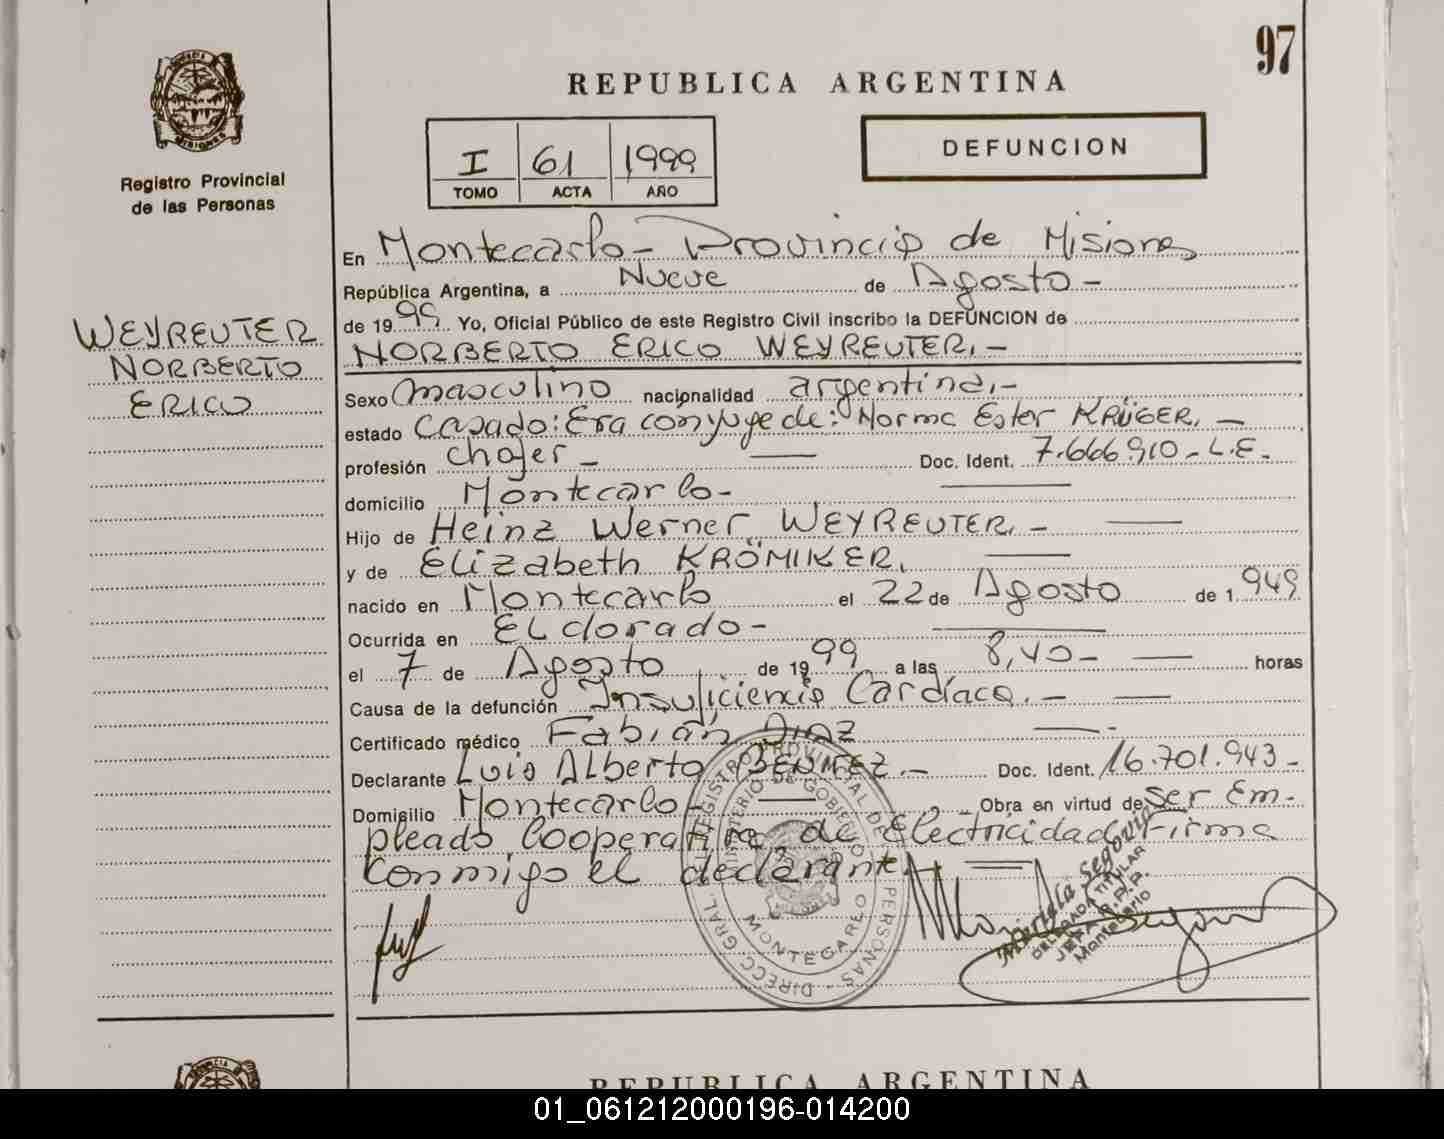 97
REPUBLICA ARGENTINA
I 61 1999
TOMO ACTA AÑO
DEFUNCION
MISIONES
Registro Provincial
de las Personas
WEYREUTER
NORBERTO
ERICO
En Montecarlo - Provincia de Misiones
República Argentina, a Nueve de Agosto -
de 1999 Yo, Oficial Público de este Registro Civil inscribo la DEFUNCION de
NORBERTO ERICO WEYREUTER, -
Sexo masculino nacionalidad argentina, -
estado Casado: Era cónyuge de: Norma Ester KRÜGER, -
profesión chofer - Doc. Ident. 7.666.910 - L.E.
domicilio Montecarlo -
Hijo de Heinz Werner WEYREUTER, -
y de Elizabeth KRÖMIKER,
nacido en Montecarlo el 22 de Agosto de 1.949
Ocurrida en Eldorado -
el 7 de Agosto de 1999 a las 8,40 - horas
Causa de la defunción Insuficiencia Cardíaca. -
Certificado médico Fabián DIAZ
Declarante Luis Alberto BENITEZ. - Doc. Ident. 16.701.943 -
Domicilio Montecarlo - Obra en virtud de Ser Em-
pleado Cooperativa de Electricidad, Firma
conmigo el declarante.
DIRECC GRAL. DEL REGISTRO PROVINCIAL DE PERSONAS
MINISTERIO DE GOBIERNO
MONTECARLO
Mariela Segovia
DELEGADA TITULAR
JEFA R.P.P.
Montecarlo
REPUBLICA ARGENTINA
01_061212000196-014200